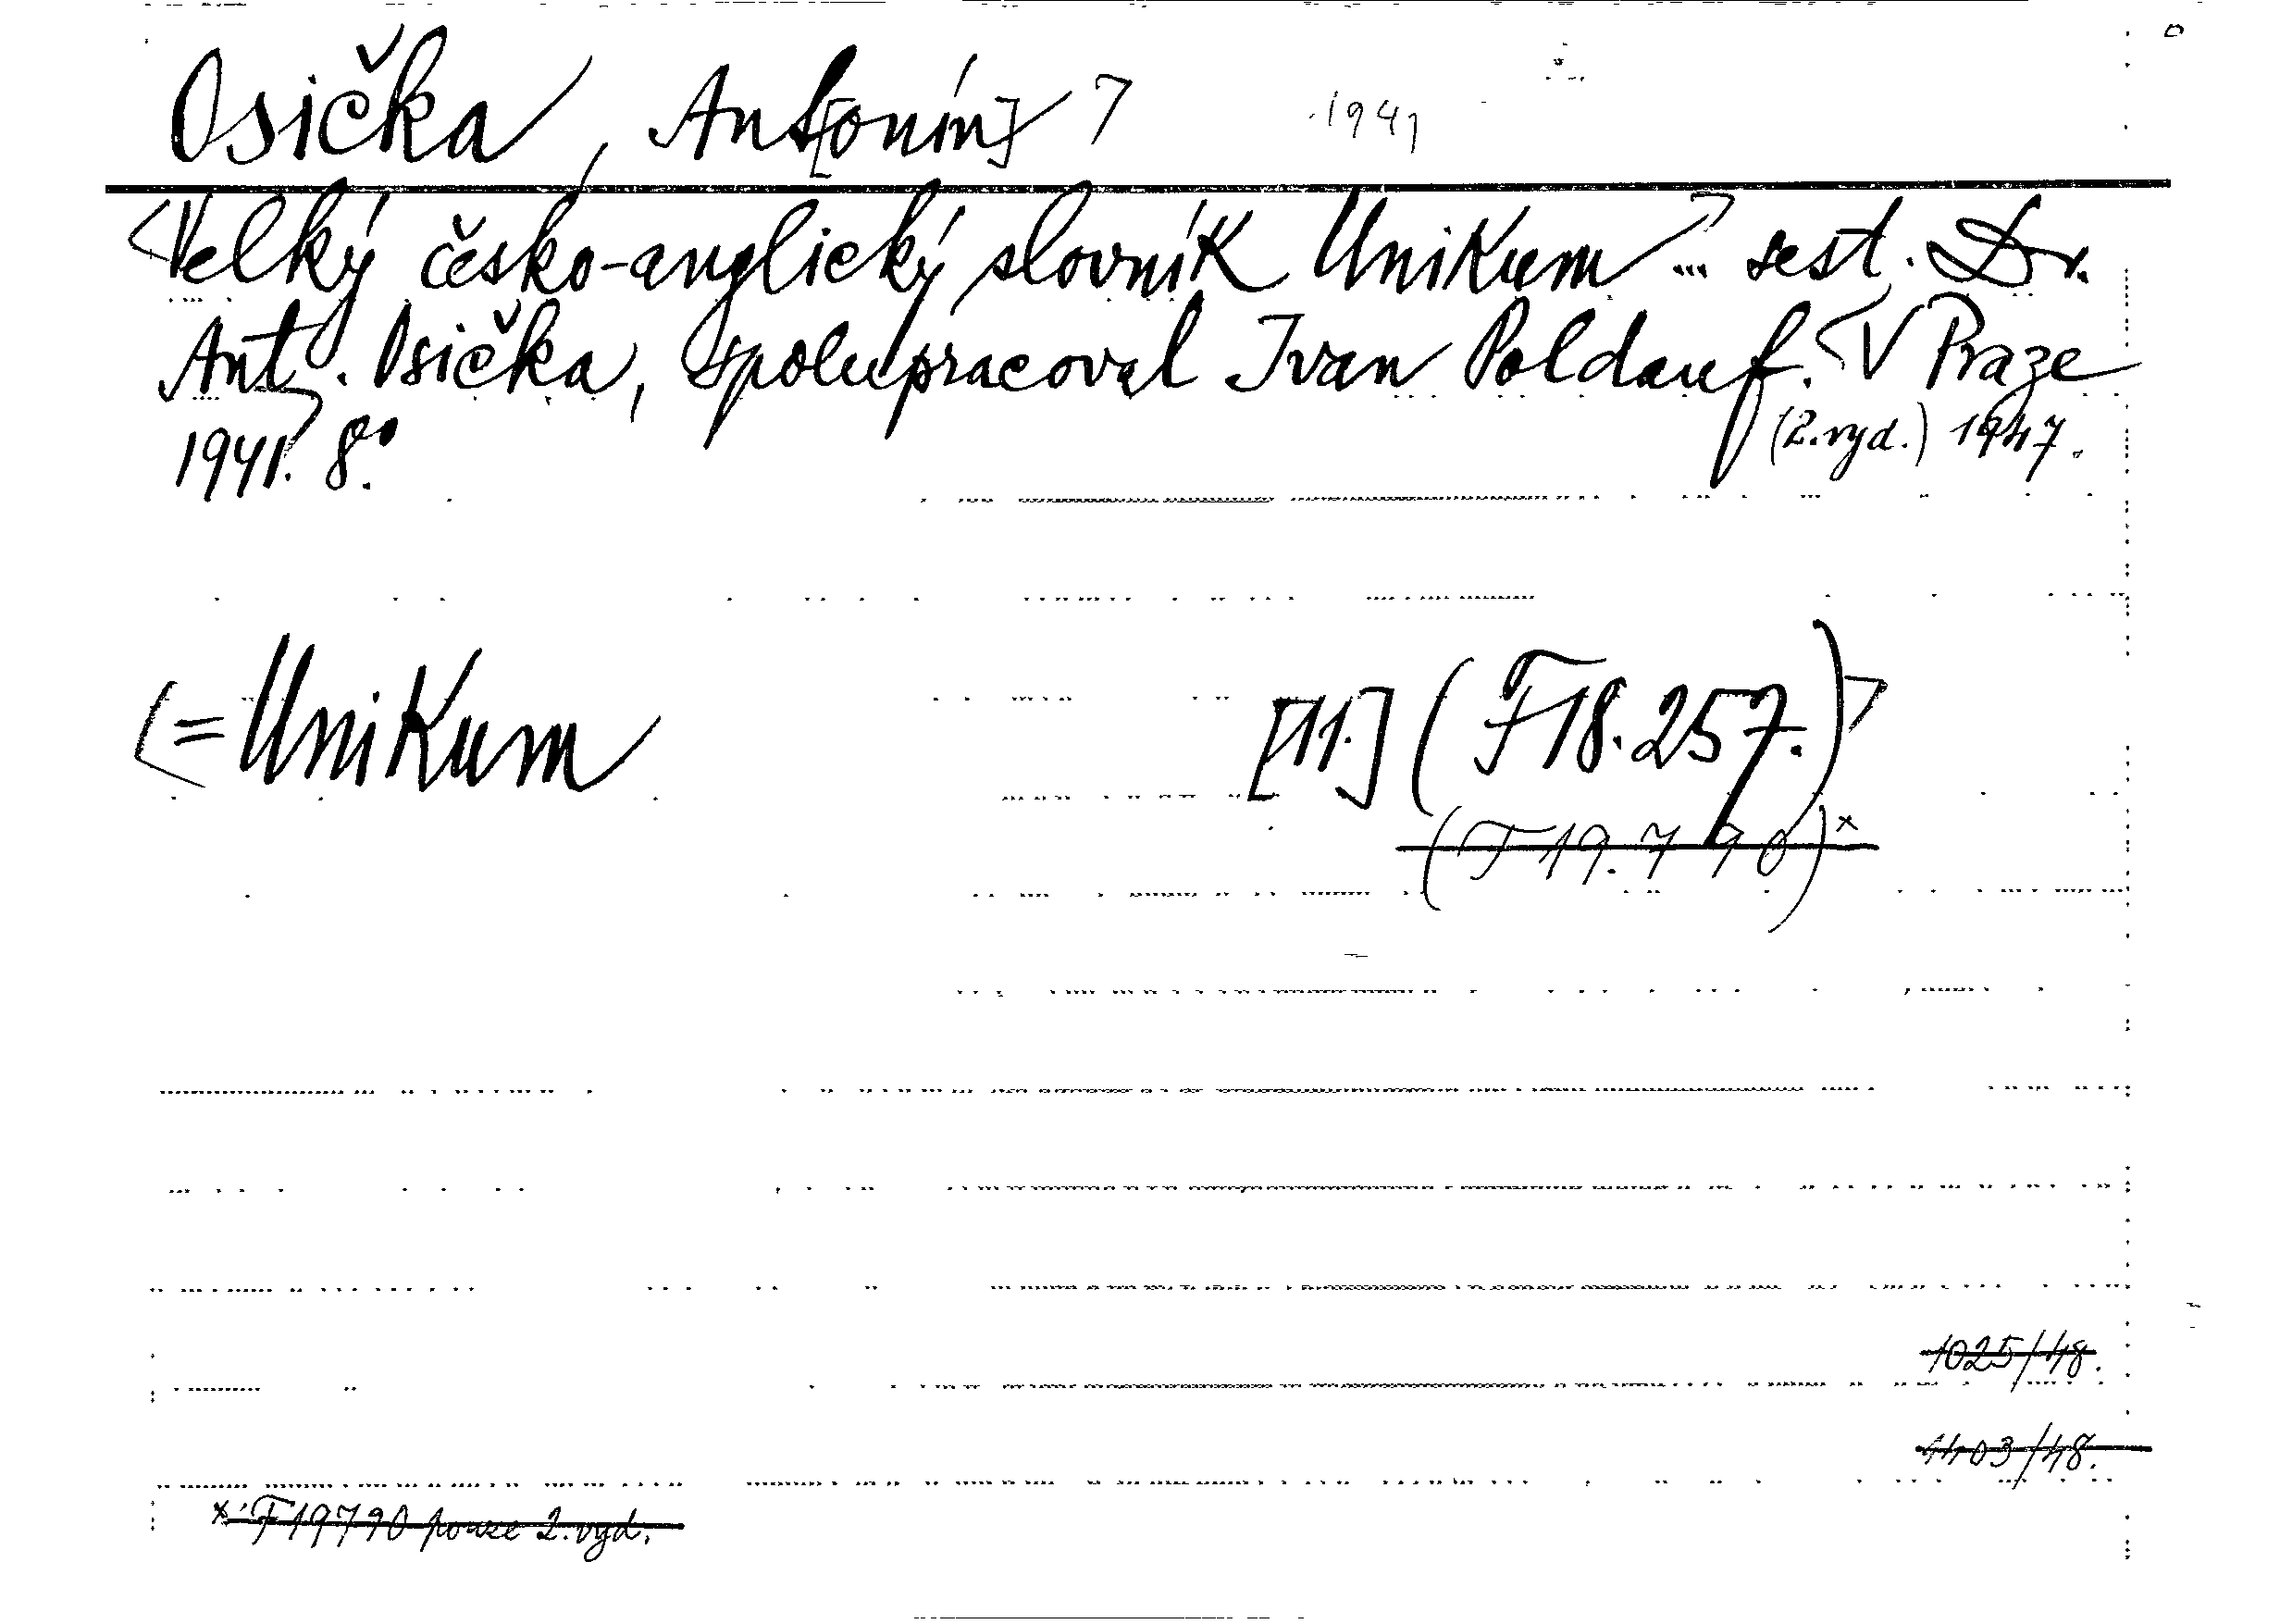 Osička, Ant[onín] 1941
Velký česko-anglický slovník Unikum ... sest. Dr.
Ant. Osička, spolupracoval Ivan Poldauf. V Praze
1941. 8°. (2. vyd.) 1947.
= Unikum [11.] (F 18.257.)
(F 19.790)ˣ
1025/48.
4403/48.
x F 19790 pouze 2. vyd.